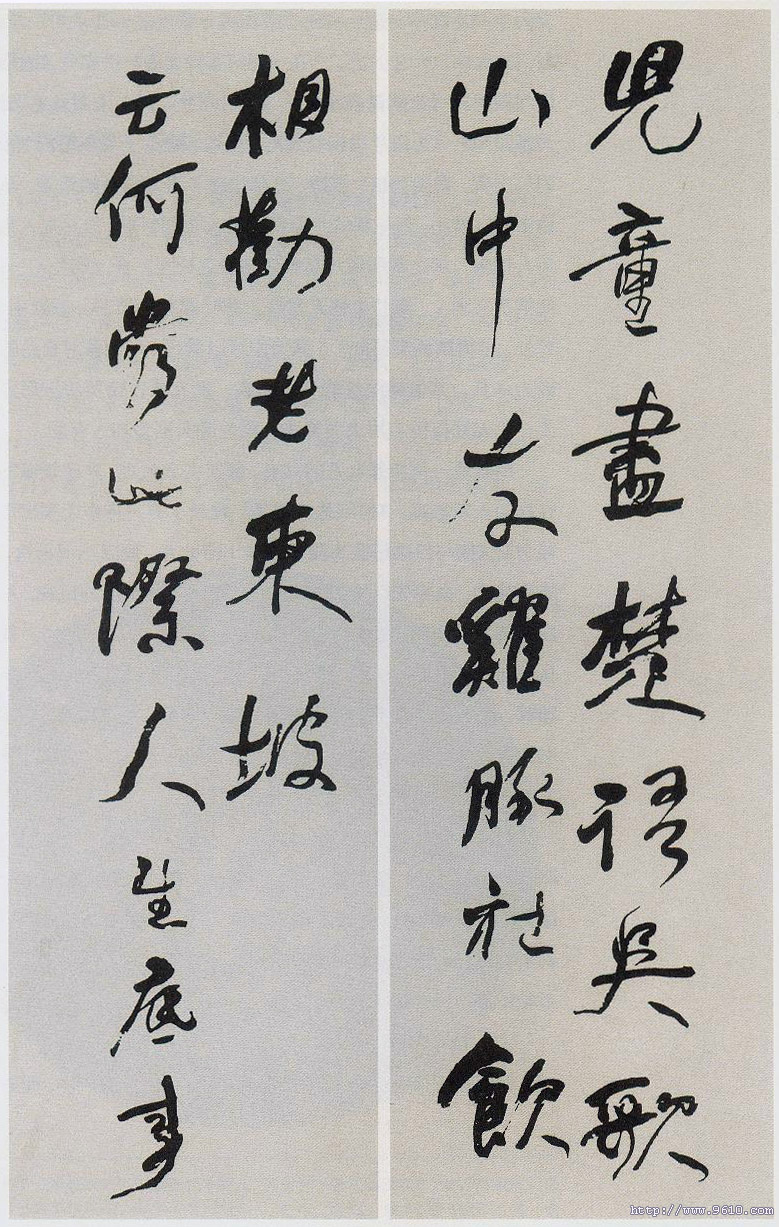 兒童盡楚語吳歌
山中友雞豚社飲
相勸老東坡
云何當此際人生底事
http://www.9610.com